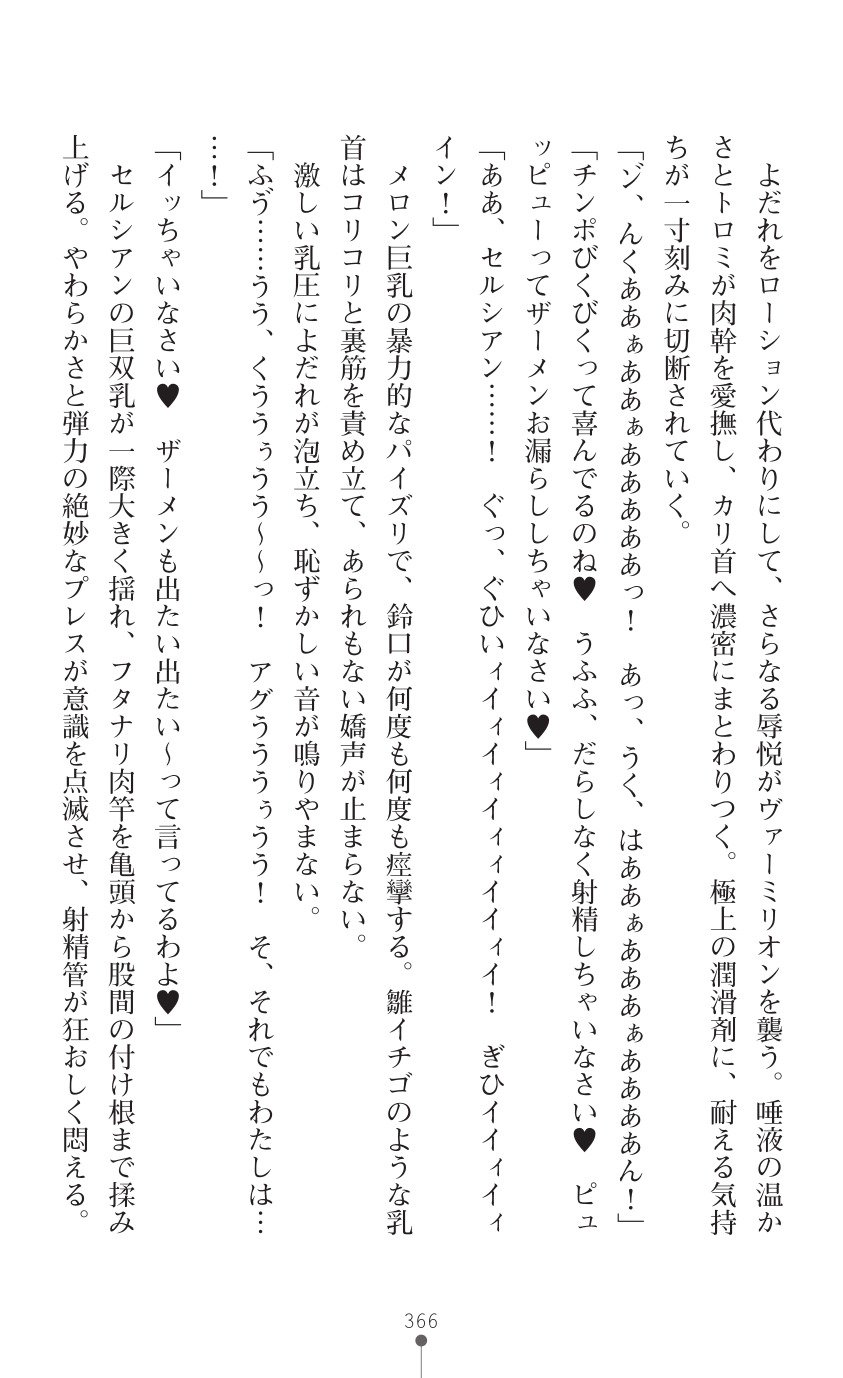 よだれをローション代わりにして、さらなる辱悦がヴァーミリオンを襲う。唾液の温か
さとトロミが肉幹を愛撫し、カリ首へ濃密にまとわりつく。極上の潤滑剤に、耐える気持
ちが一寸刻みに切断されていく。
「ゾ、んくああぁああぁああああっ！　あっ、うく、はああぁあああぁああああん！」
「チンポびくびくって喜んでるのね♥　うふふ、だらしなく射精しちゃいなさい♥　ピュ
ッピューってザーメンお漏らししちゃいなさい♥」
「ああ、セルシアン……！　ぐっ、ぐひいィイィイィイィィイイィイ！　ぎひイイィイィ
イン！」
メロン巨乳の暴力的なパイズリで、鈴口が何度も何度も痙攣する。雛イチゴのような乳
首はコリコリと裏筋を責め立て、あられもない嬌声が止まらない。
激しい乳圧によだれが泡立ち、恥ずかしい音が鳴りやまない。
「ふゔ……うう、くううぅうう～～っ！　アグうううぅうう！　そ、それでもわたしは…
…！」
「イッちゃいなさい♥　ザーメンも出たい出たい～って言ってるわよ♥」
セルシアンの巨双乳が一際大きく揺れ、フタナリ肉竿を亀頭から股間の付け根まで揉み
上げる。やわらかさと弾力の絶妙なプレスが意識を点滅させ、射精管が狂おしく悶える。
366